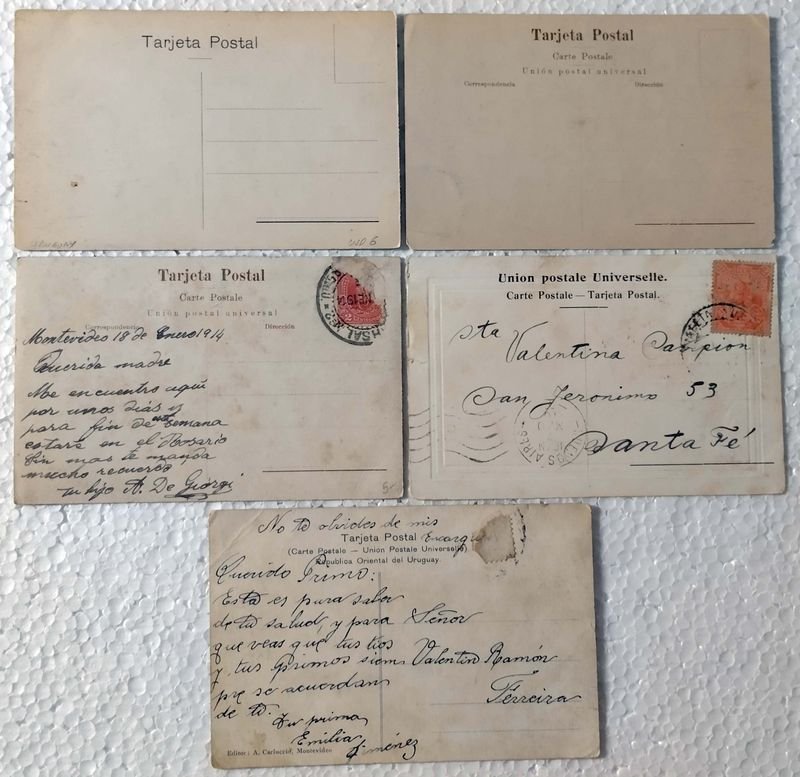 Tarjeta Postal
USD 6
Tarjeta Postal
Carte Postale
Unión postal universal
Correspondencia
Dirección
Tarjeta Postal
Carte Postale
Unión postal universal
Correspondencia
Dirección
Montevideo 18 de Enero 1914
Querida madre
Me encuentro aquí
por unos dias y
para fin de semana
estaré en el Rosario
sin mas le manda
mucho recuerdo
tu hijo A. De Giorgi
5-
Union postale Universelle.
Carte Postale — Tarjeta Postal.
Sta
Valentina
San Jeronimo 53
Santa Fé
BUENOS AIRES
No te olvides de mis
Tarjeta Postal
(Carte Postale — Union Postale Universelle)
República Oriental del Uruguay.
Querido Primo:
Esta es para saber
de tu salud, y para
que veas que tus tios
y tus primos siem
pre se acuerdan
de ti. Tu prima
Emilia Jiménez
Señor
Valentin Ramón
Ferreira
Editor: A. Carluccio, Montevideo